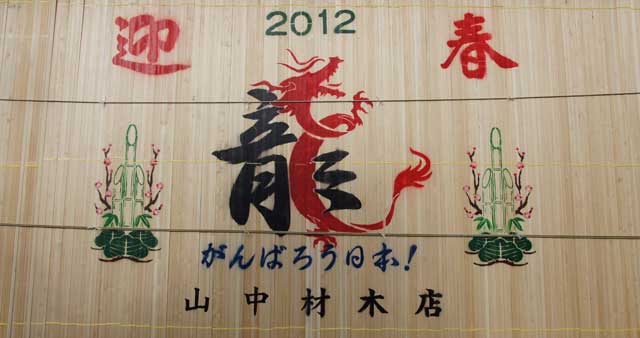 迎 2012 春
龍
がんばろう日本!
山中材木店